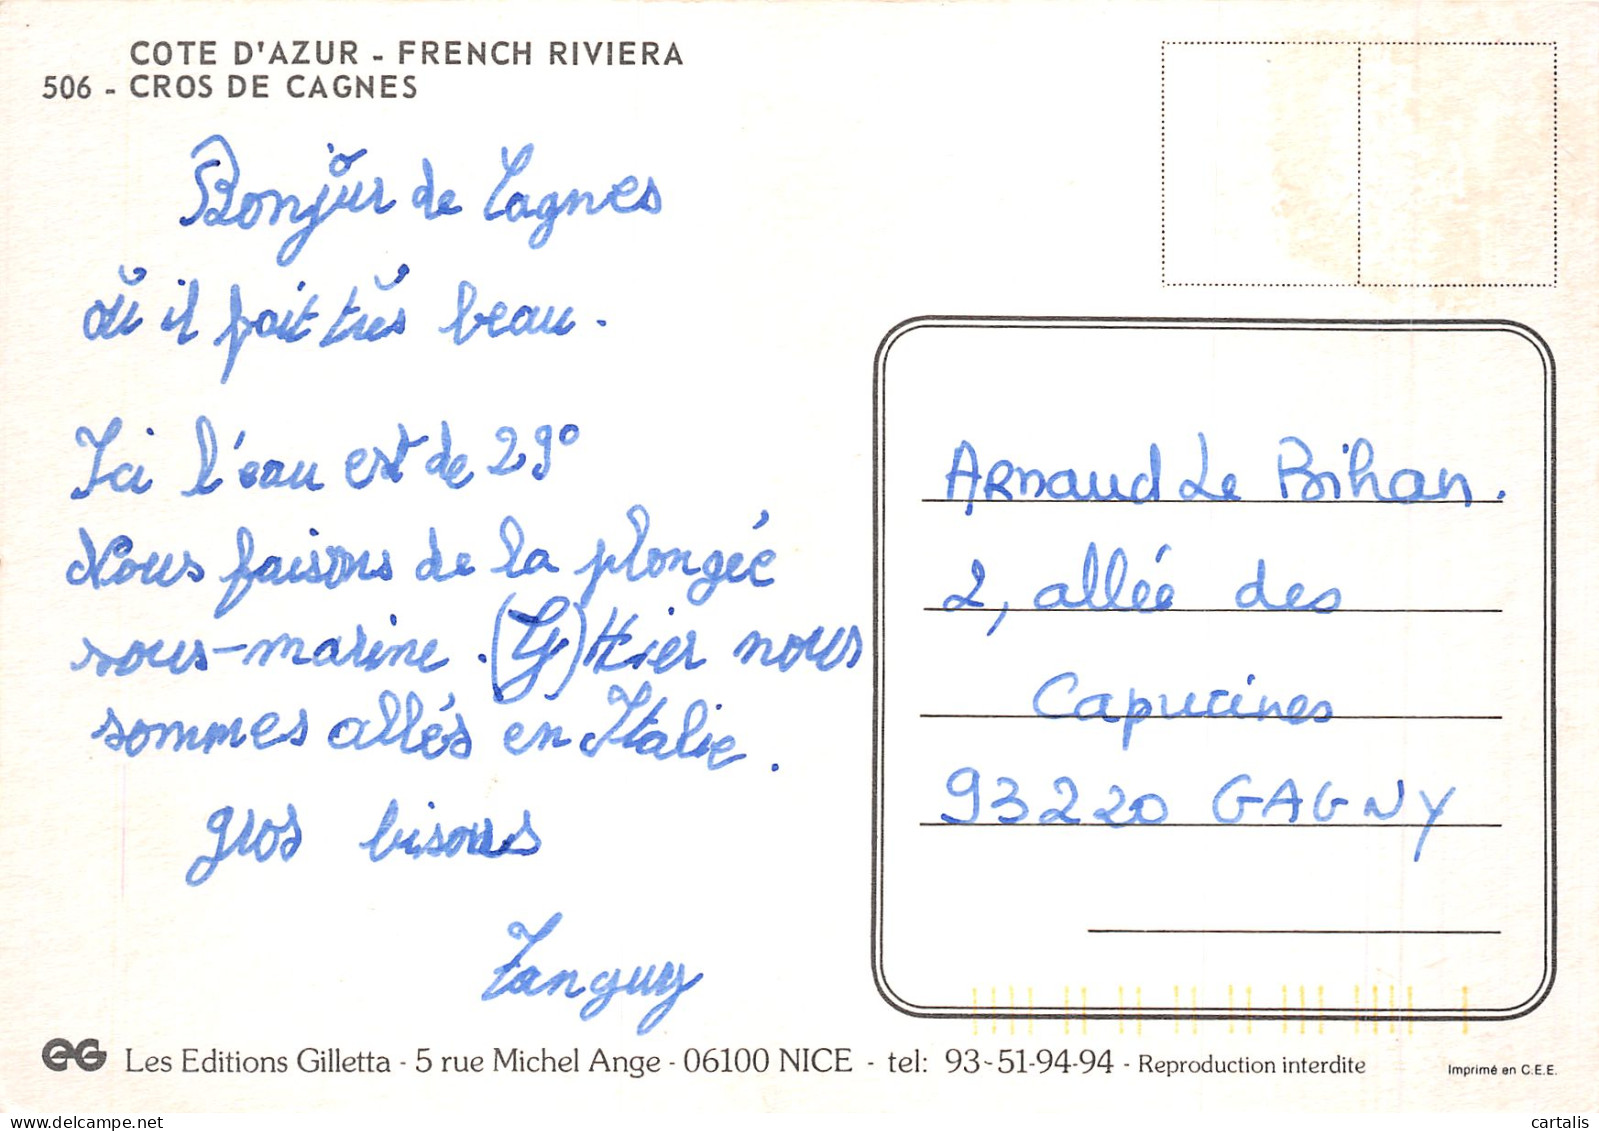 COTE D'AZUR - FRENCH RIVIERA
506 - CROS DE CAGNES
Bonjour de Cagnes
où il fait très beau.
Ici l'eau est de 29°
Nous faisons de la plongée
sous-marine. (Y) Hier nous
sommes allés en Italie.
gros bisous
Tanguy
Arnaud Le Bihan.
2, allée des
Capucines
93220 GAGNY
eG Les Editions Gilletta - 5 rue Michel Ange - 06100 NICE - tel: 93-51-94-94 - Reproduction interdite
Imprimé en C.E.E.
cartalis